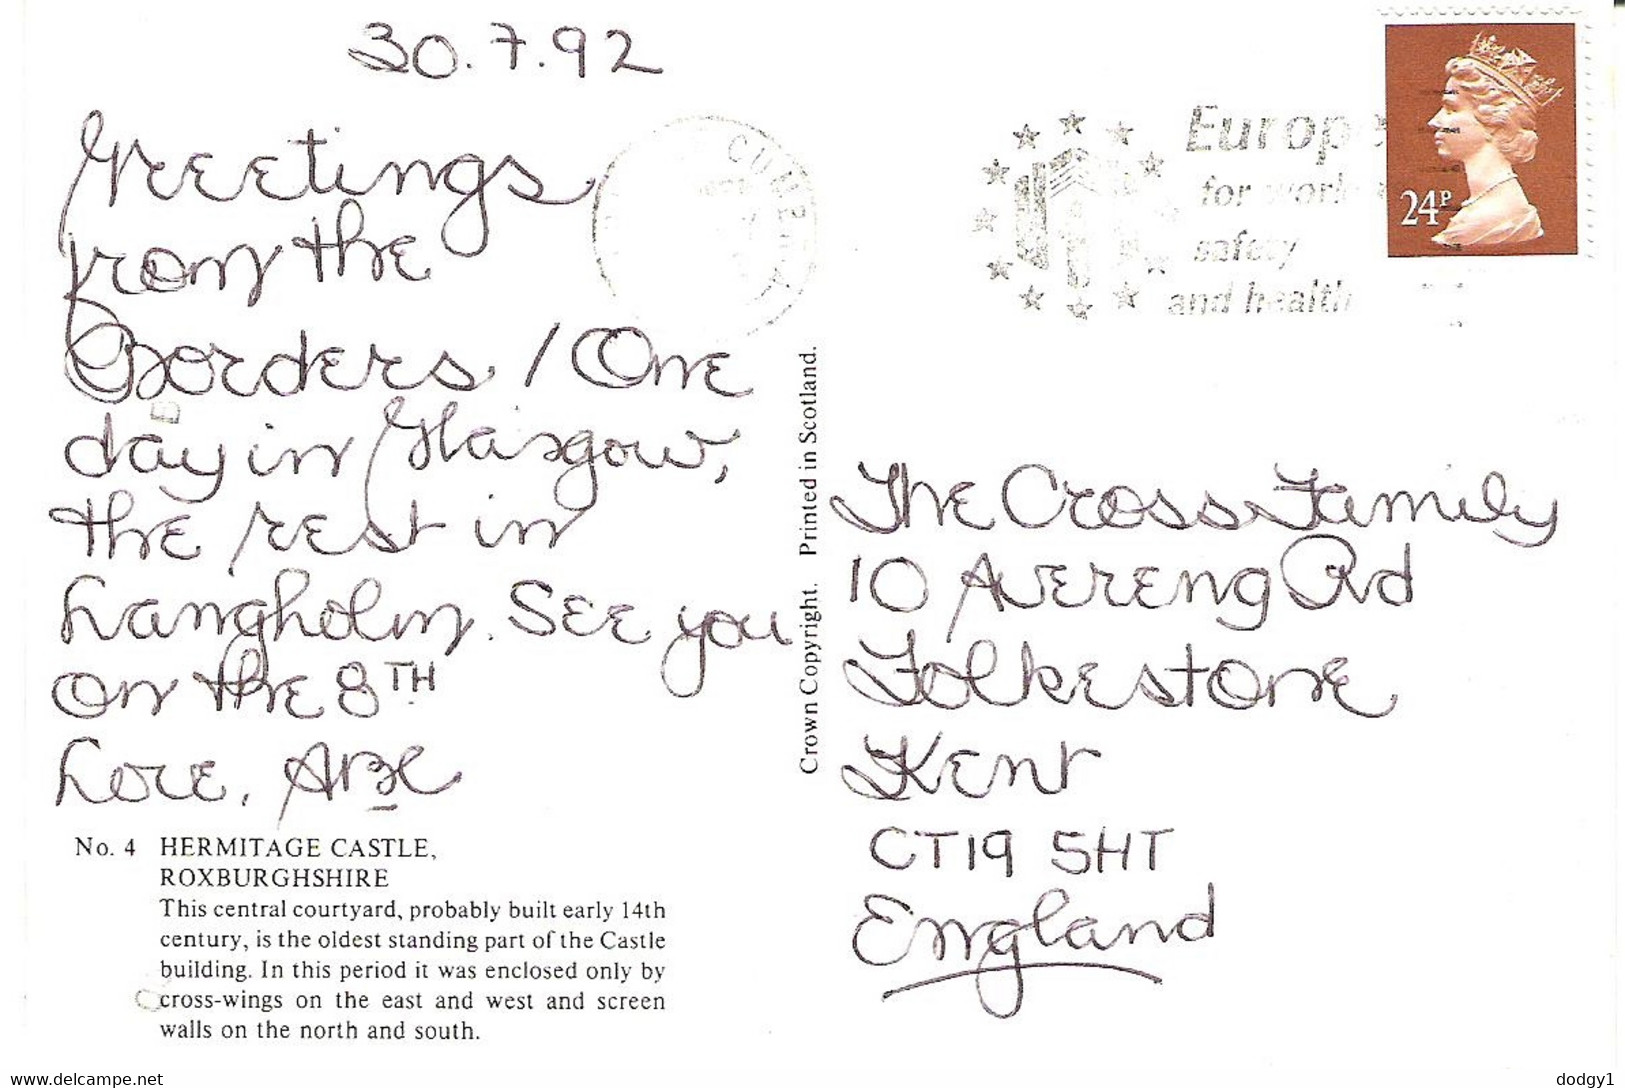 30.7.92
Greetings
from the
Borders! One
day in Glasgow,
the rest in
Langholm. See you
on the 8TH
Love,
No. 4 HERMITAGE CASTLE,
ROXBURGHSHIRE
This central courtyard, probably built early 14th
century, is the oldest standing part of the Castle
building. In this period it was enclosed only by
cross-wings on the east and west and screen
walls on the north and south.
Crown Copyright. Printed in Scotland.
CUMBRIA
Europe
for work
safety
and health
24P
The Cross Family
10 Avereng Rd
Folkestone
Kent
CT19 5HT
England
www.delcampe.net
dodgy1